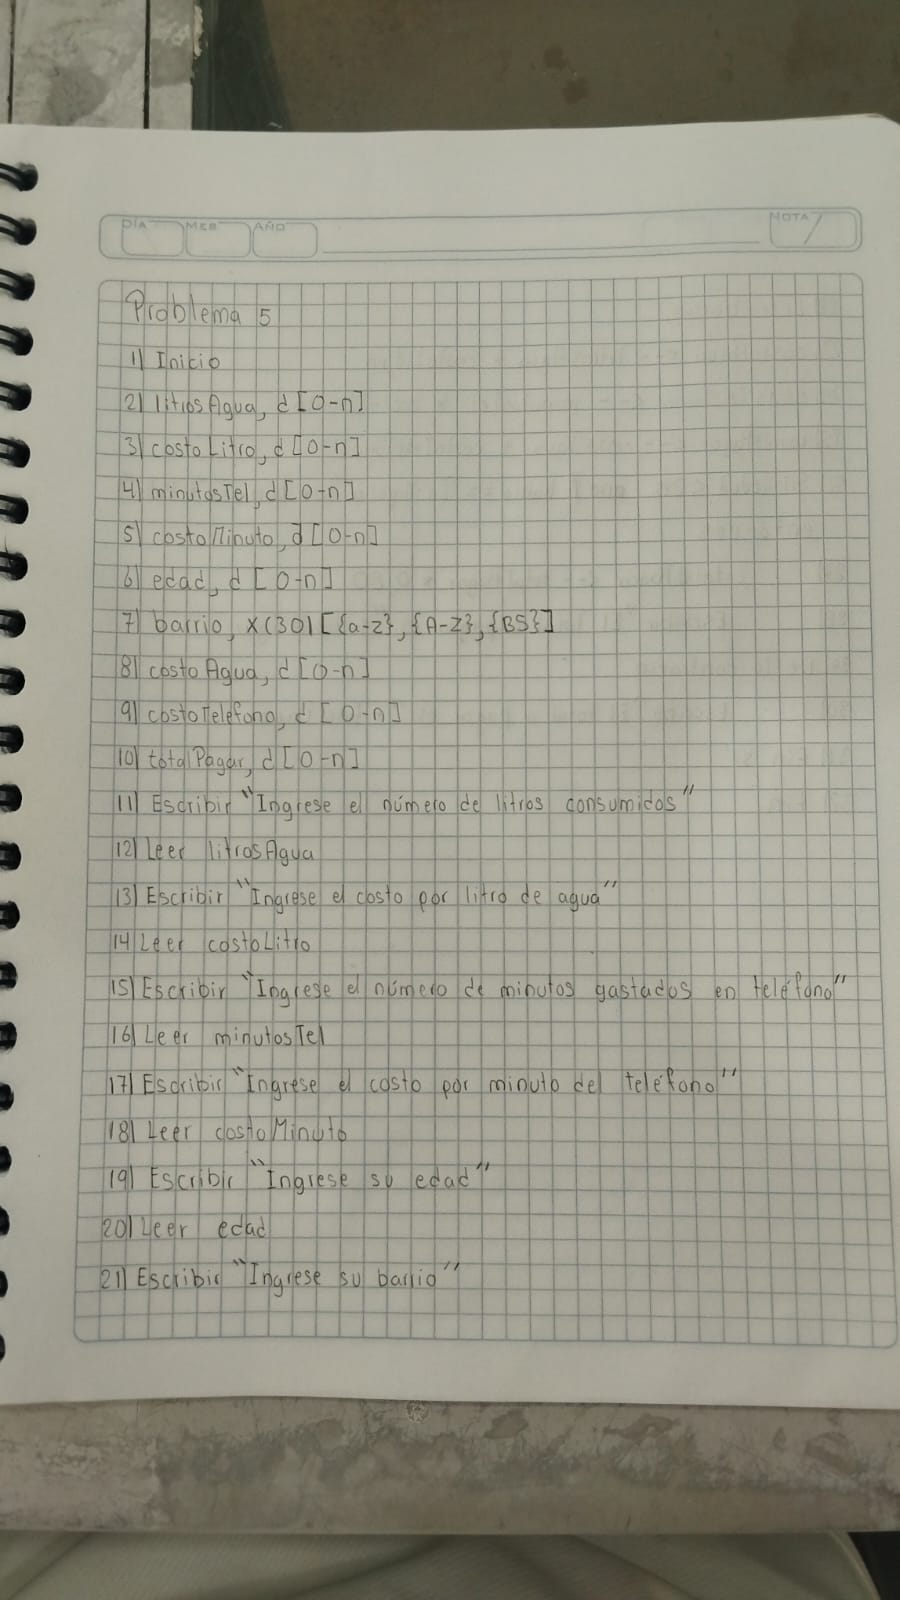 DÍA MES AÑO NOTA
Problema 5
1) Inicio
2) litrosAgua, d [0-n]
3) costoLitro, d [0-n]
4) minutosTel, d [0-n]
5) costoMinuto, d [0-n]
6) edad, d [0-n]
7) barrio, X(30) [{a-z}, {A-Z}, {BS}]
8) costoAgua, d [0-n]
9) costoTelefono, d [0-n]
10) totalPagar, d [0-n]
11) Escribir "Ingrese el número de litros consumidos"
12) Leer litrosAgua
13) Escribir "Ingrese el costo por litro de agua"
14) Leer costoLitro
15) Escribir "Ingrese el número de minutos gastados en teléfono"
16) Leer minutosTel
17) Escribir "Ingrese el costo por minuto del teléfono"
18) Leer costoMinuto
19) Escribir "Ingrese su edad"
20) Leer edad
21) Escribir "Ingrese su barrio"